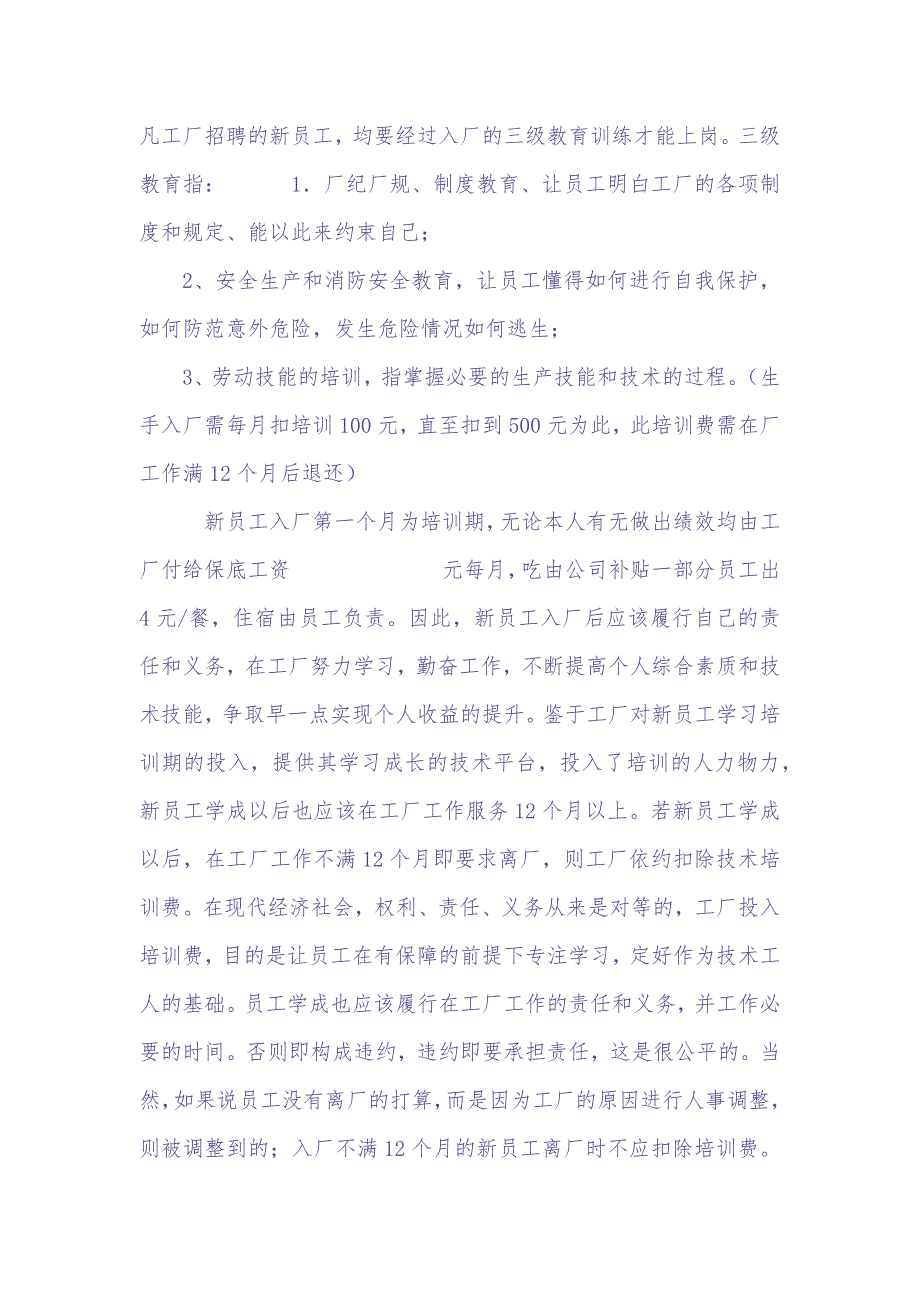 凡工厂招聘的新员工，均要经过入厂的三级教育训练才能上岗。三级
教育指： 1．厂纪厂规、制度教育、让员工明白工厂的各项制
度和规定、能以此来约束自己；
2、安全生产和消防安全教育，让员工懂得如何进行自我保护，
如何防范意外危险，发生危险情况如何逃生；
3、劳动技能的培训，指掌握必要的生产技能和技术的过程。（生
手入厂需每月扣培训100元，直至扣到500元为此，此培训费需在厂
工作满12个月后退还）
新员工入厂第一个月为培训期，无论本人有无做出绩效均由工
厂付给保底工资 元每月，吃由公司补贴一部分员工出
4元/餐，住宿由员工负责。因此，新员工入厂后应该履行自己的责
任和义务，在工厂努力学习，勤奋工作，不断提高个人综合素质和技
术技能，争取早一点实现个人收益的提升。鉴于工厂对新员工学习培
训期的投入，提供其学习成长的技术平台，投入了培训的人力物力，
新员工学成以后也应该在工厂工作服务12个月以上。若新员工学成
以后，在工厂工作不满12个月即要求离厂，则工厂依约扣除技术培
训费。在现代经济社会，权利、责任、义务从来是对等的，工厂投入
培训费，目的是让员工在有保障的前提下专注学习，定好作为技术工
人的基础。员工学成也应该履行在工厂工作的责任和义务，并工作必
要的时间。否则即构成违约，违约即要承担责任，这是很公平的。当
然，如果说员工没有离厂的打算，而是因为工厂的原因进行人事调整，
则被调整到的；入厂不满12个月的新员工离厂时不应扣除培训费。